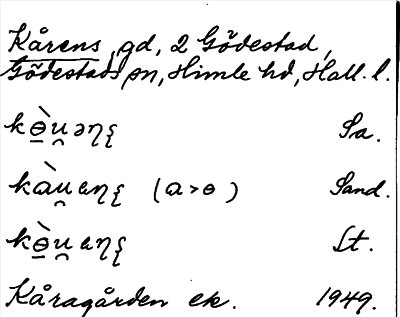 Kårens, gd, 2 Gödestad,
Gödestads sn, Himle hd, Hall. l.
kɵ̀u̯əƞʂ Sa.
kàu̯ɐƞʂ (a>ɵ) Sand.
kɵ̀u̯ɐƞʂ Lt.
Kåragården ek. 1949.